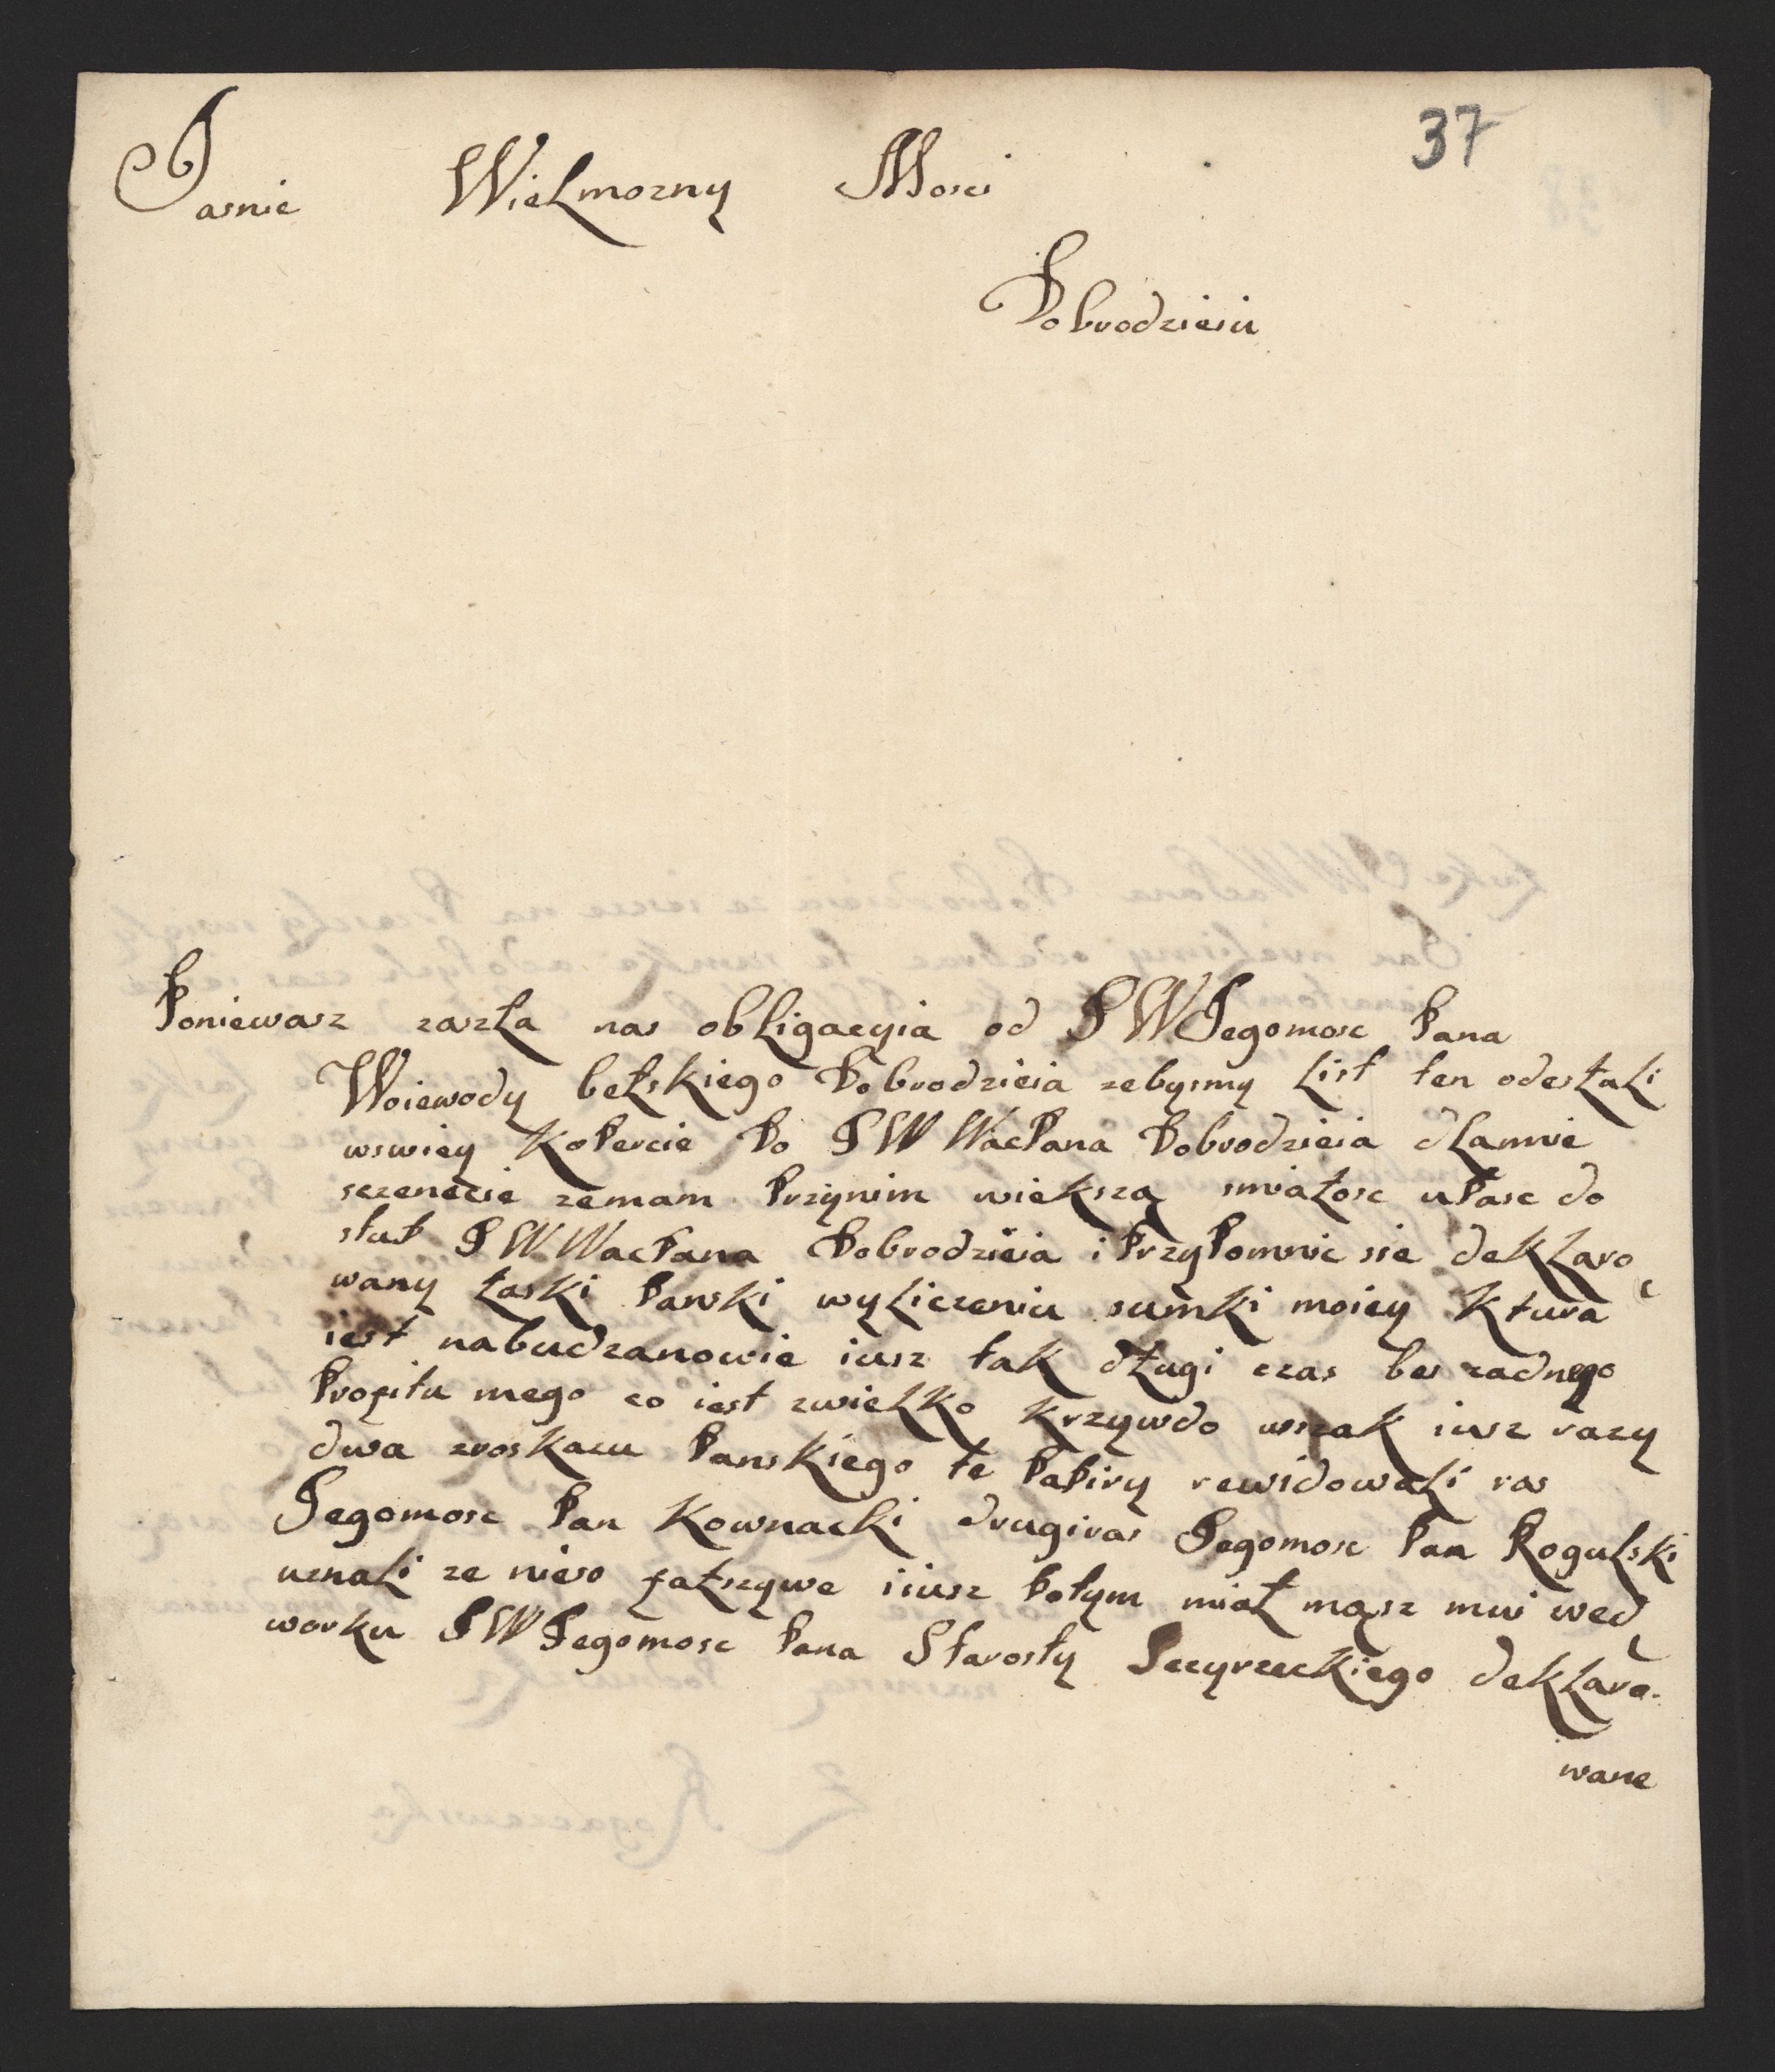 37
Jasnie Wielmozny Mosci
Dobrodzieiu
Poniewasz zaszła nas obligacyia od J W Jegomosc Pana
Woiewody bełskiego Dobrodzieia zebysmy list ten odesłali
wswiey Kopercie Do J W WacPana Dobrodzieia dlamnie
sczenscie zemam Przynim wieksza smiałosc upasc do
stup J W WacPana Dobrodzieia i Przypomnic sie deklaro
wany łaski Panski wyliczeniu sumki moiey Ktura
iest nabudzanowie iusz tak długi czas bes zadnego
Profitu mego co iest zwielko Krzywdo wszak iusz razy
dwa zroskazu Panskiego te Papiry rewidowali ras
Jegomosc Pan Kownacki drugiras Jegomosc Pan Rogulski
uznali ze nieso fatszywe iiusz Potym miał mąsz mui wed
worku J W Jegomosc Pana Starosty Sczyrzeckiego deklaro-
wane